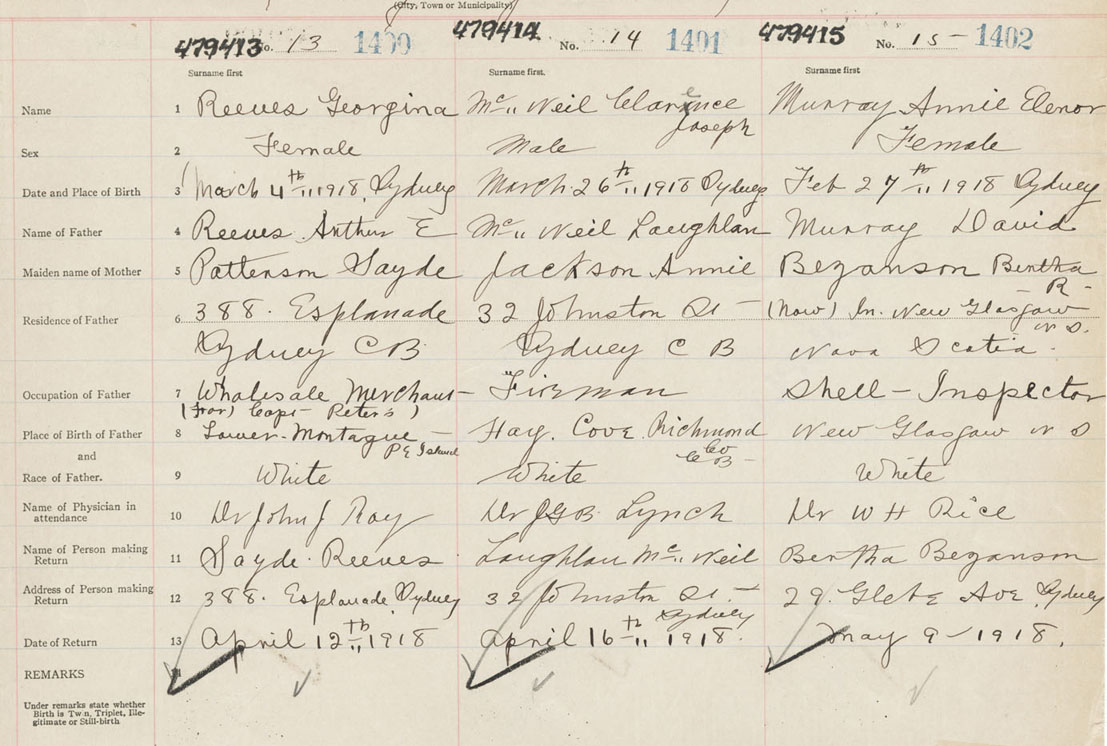 (City, Town or Municipality)
479413 No. 13 1400 479414 No. 14 1401 479415 No. 15 - 1402
Surname first Surname first. Surname first
Name 1 Reeves Georgina Mc,, Neil Clarence Joseph Murray Annie Elenor
Sex 2 Female Male Female
Date and Place of Birth 3 March 4th,, 1918, Sydney March 26th,, 1918 Sydney Feb 27th,, 1918 Sydney
Name of Father 4 Reeves Arthur E Mc,, Neil Laughlan Murray David
Maiden name of Mother 5 Patterson Sayde Jackson Annie Bezanson Bertha R -
Residence of Father 6 388. Esplanade 32 Johnston St - (Now) In. New Glasgow N.S.
Sydney C B Sydney C B Nova Scotia.
Occupation of Father 7 Wholesale Merchant - Fireman Shell - Inspector
(for) Capt - Peter's )
Place of Birth of Father 8 Lower-Montague - PE Island Hay. Cove Richmond Co CB - New Glasgow N S
and
Race of Father. 9 White White White
Name of Physician in attendance 10 Dr John J Roy Dr JGB. Lynch Dr W H Rice
Name of Person making Return 11 Sayde. Reeves Laughlan Mc,, Neil Bertha Bezanson
Address of Person making Return 12 388. Esplanade, Sydney 32 Johnston St. - Sydney 29. Glebe Ave, Sydney
Date of Return 13 April 12th,, 1918 April 16th,, 1918. May 9 - 1918.
REMARKS 14
Under remarks state whether
Birth is Twin, Triplet, Ille-
gitimate or Still-birth